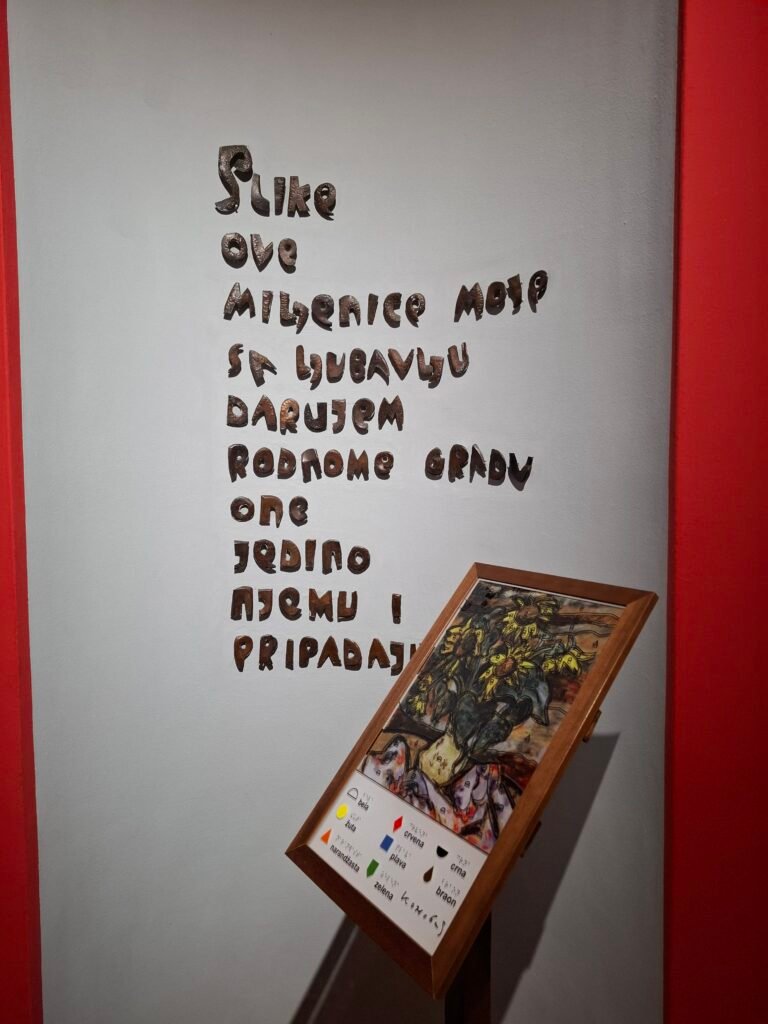 SLIKE
OVE
MILJENICE MOJE
SA LJUBAVLJU
DARUJEM
RODNOME GRADU
ONE
JEDINO
NJEMU I
PRIPADAJU
bela
žuta
narandžasta
crvena
plava
zelena
crna
braon